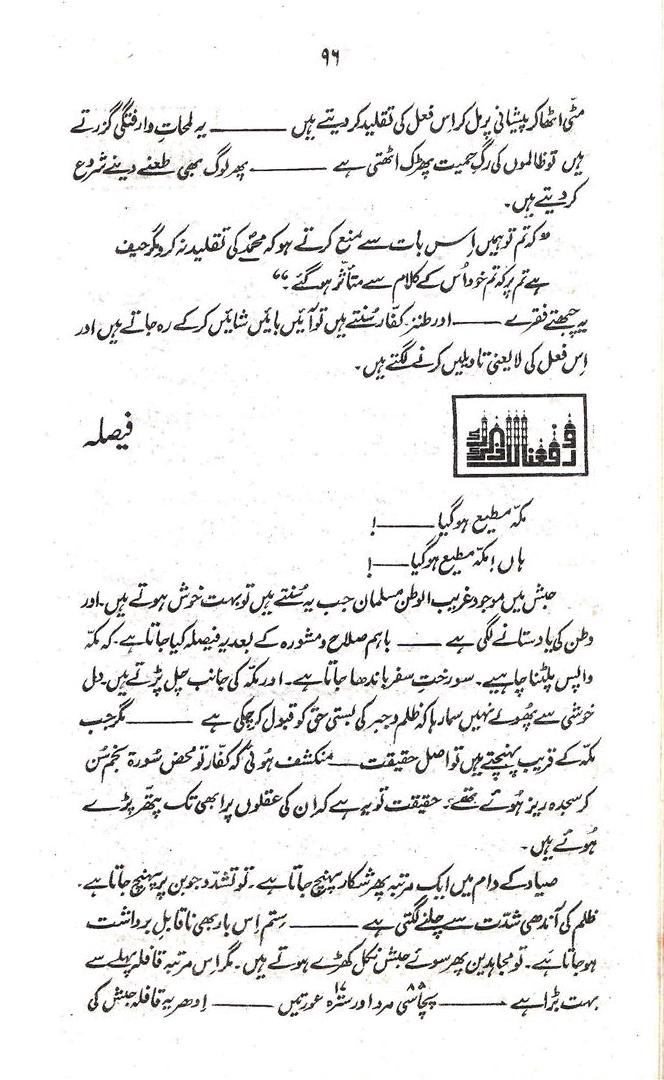 ۹۶
مٹی اٹھا کر پیشانی پر مل کر اِس فعل کی تقلید کر دیتے ہیں ——— یہ لمحاتِ وارفتگی گزرتے
ہیں تو ظالموں کی رگِ حمیت پھڑک اٹھتی ہے ——— پھر لوگ بھی طعنے دینے شروع
کر دیتے ہیں۔
”کہ تم تو ہمیں اِس بات سے منع کرتے ہو کہ محمدؐ کی تقلید نہ کرو مگر حیف
ہے تم پر کہ تم خود اُس کے کلام سے متاثر ہو گئے۔“
یہ چبھتے فقرے ——— اور طنزِ کفّار سُنتے ہیں تو آئیں بائیں شائیں کر کے رہ جاتے ہیں اور
اِس فعل کی لا یعنی تاویلیں کرنے لگتے ہیں۔
ورفعنا لک ذکرک
فیصلہ
مکّہ مطیع ہو گیا ——— !
ہاں! مکّہ مطیع ہو گیا ——— !
حبش میں موجود غریب الوطن مسلمان جب یہ سُنتے ہیں تو بہت خوش ہوتے ہیں۔ اور
وطن کی یاد ستانے لگی ہے ——— باہم صلاح و مشورہ کے بعد یہ فیصلہ کیا جاتا ہے۔ کہ مکّہ
واپس پلٹنا چاہیے۔ سو رختِ سفر باندھا جاتا ہے۔ اور مکّہ کی جانب چل پڑتے ہیں۔ دل
خوشی سے پھُولے نہیں سما رہا کہ ظلم و جبر کی بستی حق کو قبول کر چکی ہے ——— مگر جب
مکّہ کے قریب پہنچتے ہیں تو اصل حقیقت —— منکشف ہوئی کہ کفّار تو محض سُورۃ نجم سُن
کر سجدہ ریز ہُوئے تھے۔ حقیقت تو یہ ہے کہ ان کی عقلوں پر ابھی تک پتھر پڑے
ہُوئے ہیں۔
صیاد کے دام میں ایک مرتبہ پھر شکار پہنچ جاتا ہے۔ تو تشدّد جوبن پر پہنچ جاتا ہے۔
ظلم کی آندھی شدّت سے چلنے لگتی ہے ——— سِتم اِس بار بھی ناقابلِ برداشت
ہو جاتا ہے۔ تو مجاہدین پھر سوئے حبش نکل کھڑے ہوتے ہیں۔ مگر اس مرتبہ قافلہ پہلے سے
بہت بڑا ہے ——— پچاسی ۸۵ مرد اور سترہ ۱۷ عورتیں ——— اِدھر یہ قافلہ حبش کی